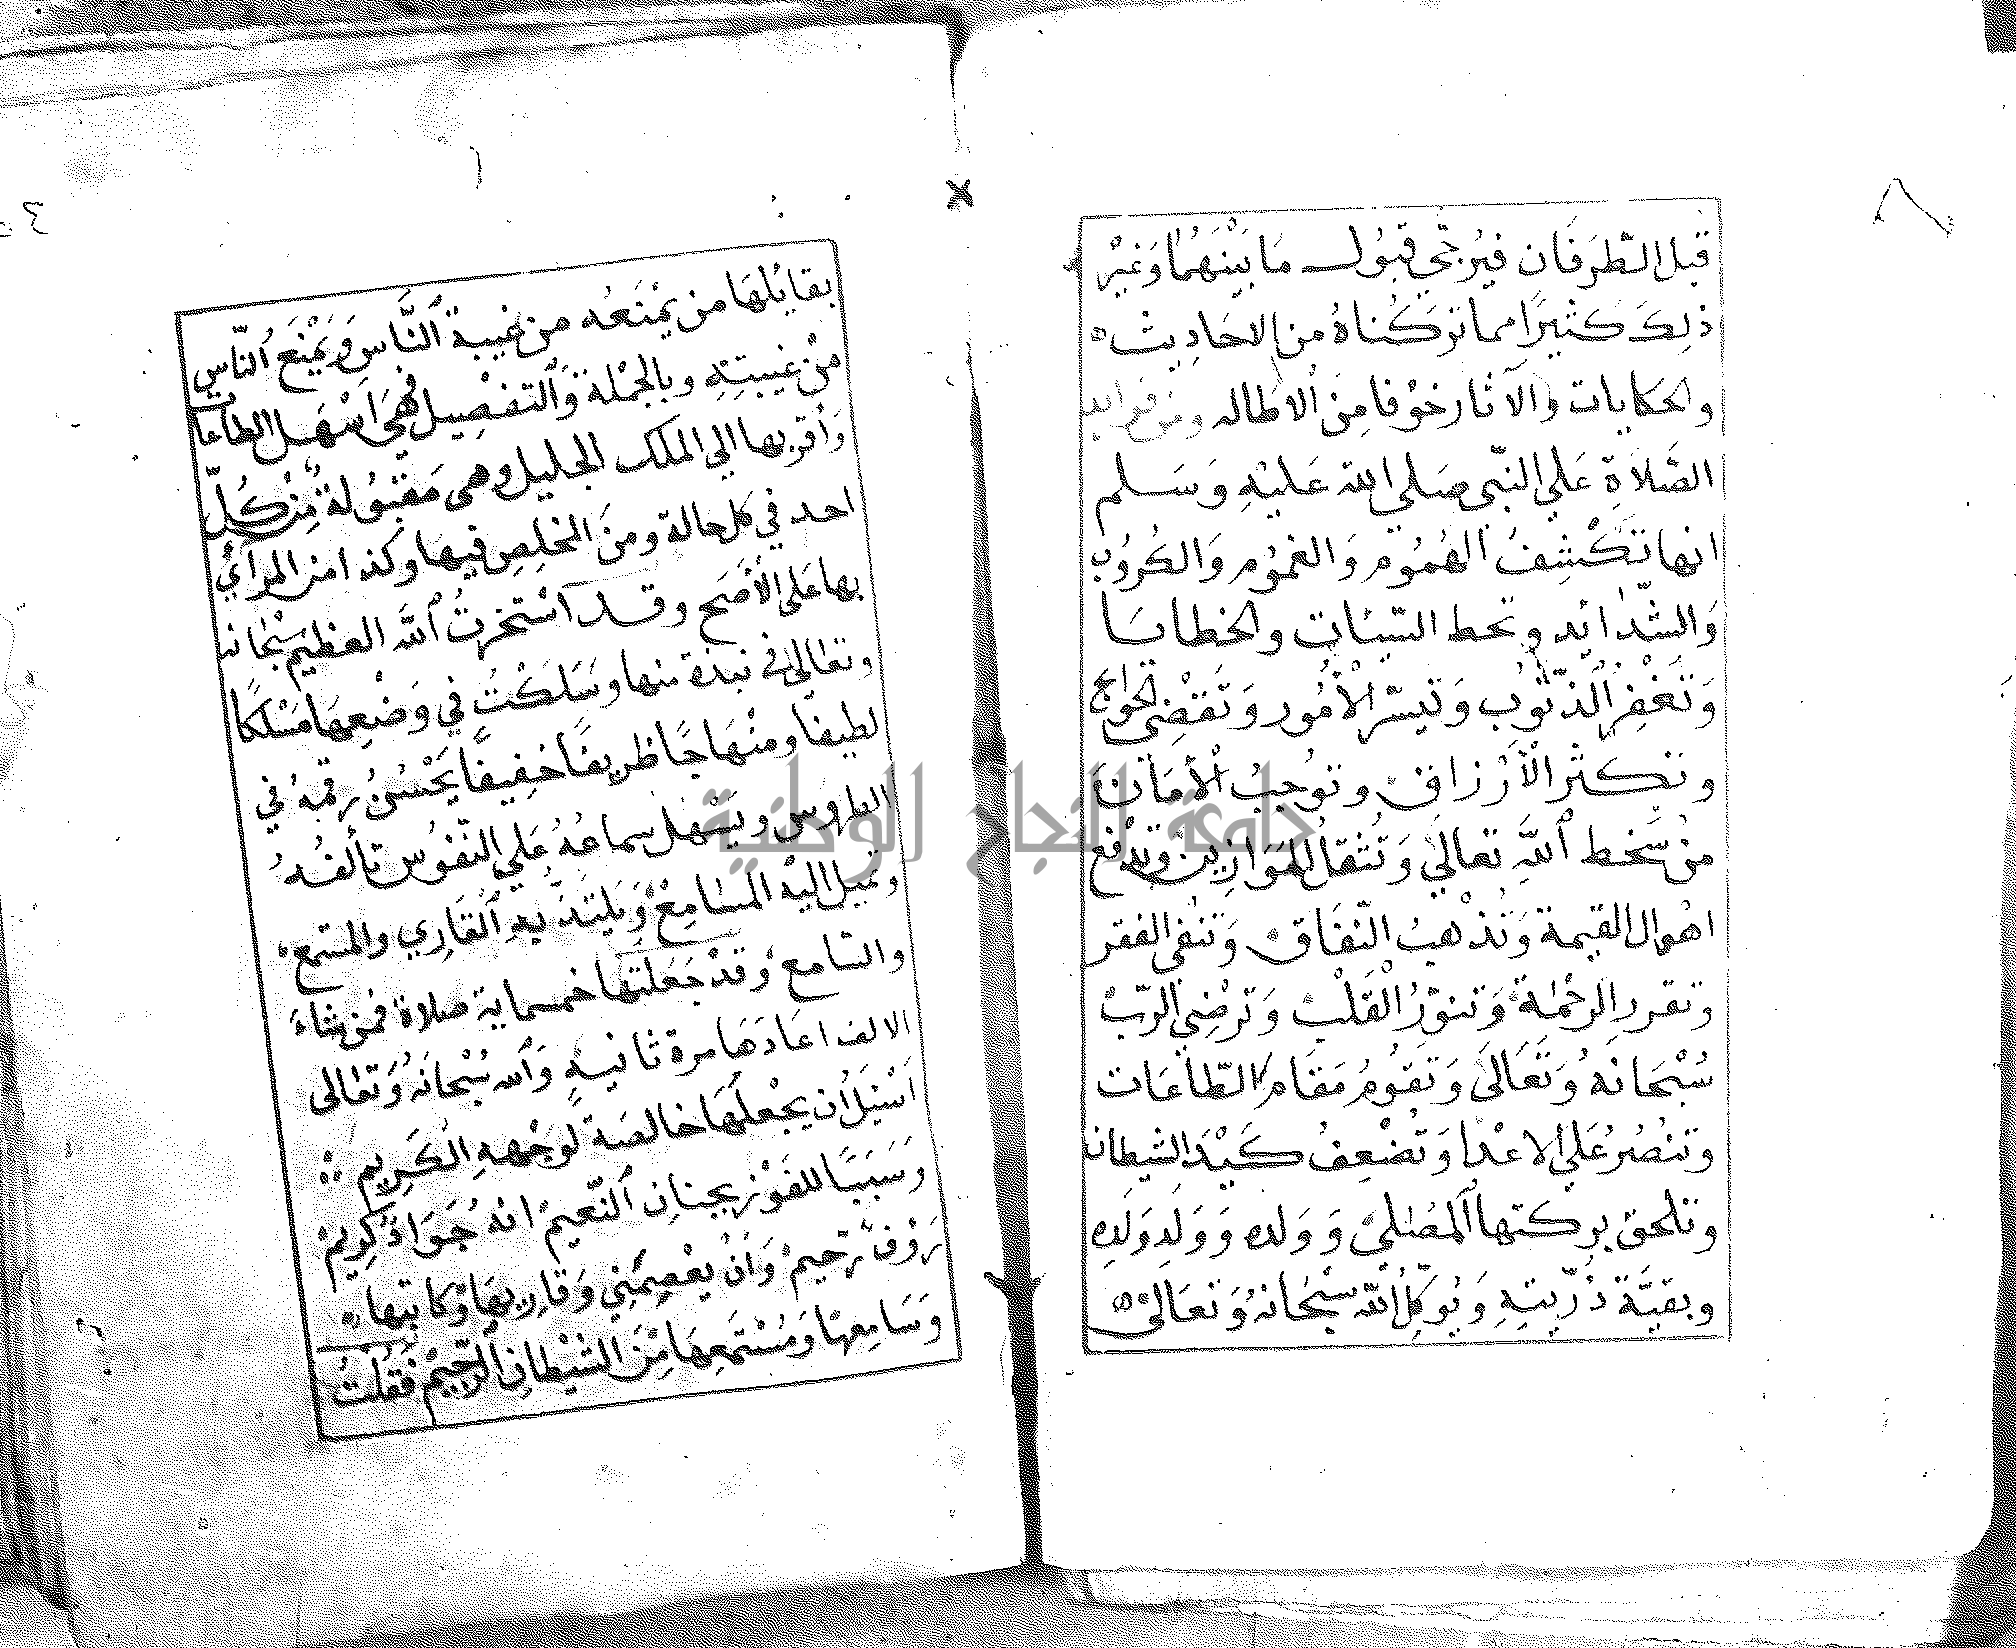 قبل الطَّرفَان فيُرجّي قبُول مَا بَيْنَهُمَا وَغيْر
ذلِكَ كثيرًا مما تركنَاهُ من الاحَادِيث
والحكايات والآثار خوْفا مِنْ الاطاله ومن فوايد
الصَّلاة عَلي النّبي صَلي الله عَليْهِ وَسَلم
انها تكْشِفُ الهُمُوم وَالغمُوم وَالكُرُوب
وَالشّدائد وتحط السّيئات والخطايا
وَتَغفِر الذّنُوب وَتيسّر الأمُور وَتَقضِي الحوايج
وتكثر الأرْزاق وتوجبُ الأمَان
منْ سَخط اللهِ تعالَي وَتُثقل المَوَازين وتدْفع
اهْوال القيمة وَتُذْهبُ النّفَاق وَتَنفي الفقر
وتقرر الرحْمة وَتنوّرُ القَلْب وَترْضِي الرّبّ
سُبْحَانهُ وَتَعَالَى وَتقومُ مَقَام الطّاعَات
وَتنصُرُ عَلي الاعْدا وَتُضْعِفُ كَيْدَ الشيطان
وتلحق بركتها المصَلي وَولده وَولدِ وَلَدِه
وبقيَّة ذرّيتِهِ وَيُوكِل اللّه سبْحَانهُ وَتعَالى
بقايلهَا من يمْنَعُه من غيبة النَّاس وَيَمْنَع النّاس
منْ غيبتهِ وبالجمْلة وَالتفصِيل فَهيَ اسْهَل الطاعات
وَأقربها الي الملك الجليل وهي مَقبُولة مِنْ كُلّ
احد في كل حالة ومنَ المخلصِ فيها وكذا من المرَائي
بها عَلى الأصَح وقد اسْتخرتُ اللَّه العظيم سبْحَانه
وتعالى في نبذة منها وسَلكْتُ في وَضْعِهَا مسْلكًا
لطيفا ومنْهَاجًا ظريفًا خفِيفًا يَحْسُنُ رقمهُ في
الطروس ويَسْهل سماعُهُ عَلي النّفُوس تألفُهُ
وتميل اليْه المسَامِعْ وَيلتذّ بهِ القَارِي والمستمع
والسَّامع وَقدْ جَعَلتها خمسماية صلاة فمن شاءَ
الالف اعَادَهَا مرة ثانيةٍ وَالله سُبْحَانَهُ وَتعَالى
اسْئلُ أن يجْعلَهَا خالصَة لوَجْههِ الكَريم
وَسَببًا للفَوْز بجنانِ النّعيمْ انهُ جَوَادٌ كريمْ
رَؤفٌ رّحيمْ وَأنْ يعْصِمَني وَقاريهَا وَكاتبها
وَسَامِعهَا وَمُسْتمعِهَا مِنَ الشّيْطانِ الرّجيْم فقُلتُ
جامعة النجاح الوطنية